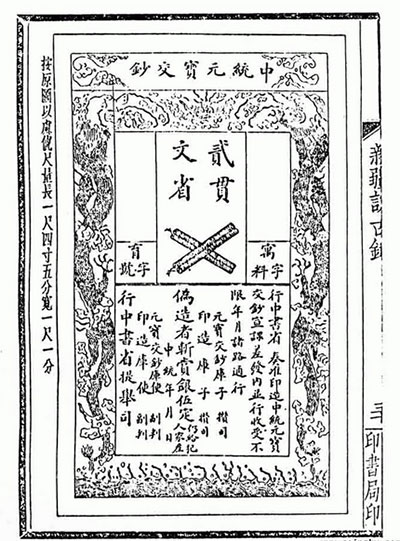 新疆訪古錄
印書局印
中統元寶交鈔
貳貫
文省
寓字料
育字號
行中書省 奏准印造中統元寶
交鈔宣課差發內並行收受不
限年月諸路通行
元寶交鈔庫子 攢司
印造庫子 攢司
偽造者斬賞銀伍定 仍給犯人家產
中統 年 月 日
元寶交鈔庫使 副判
印造庫使 副判
行中書省提舉司
按原圖以慮俿尺量長一尺四寸五分寬一尺一分